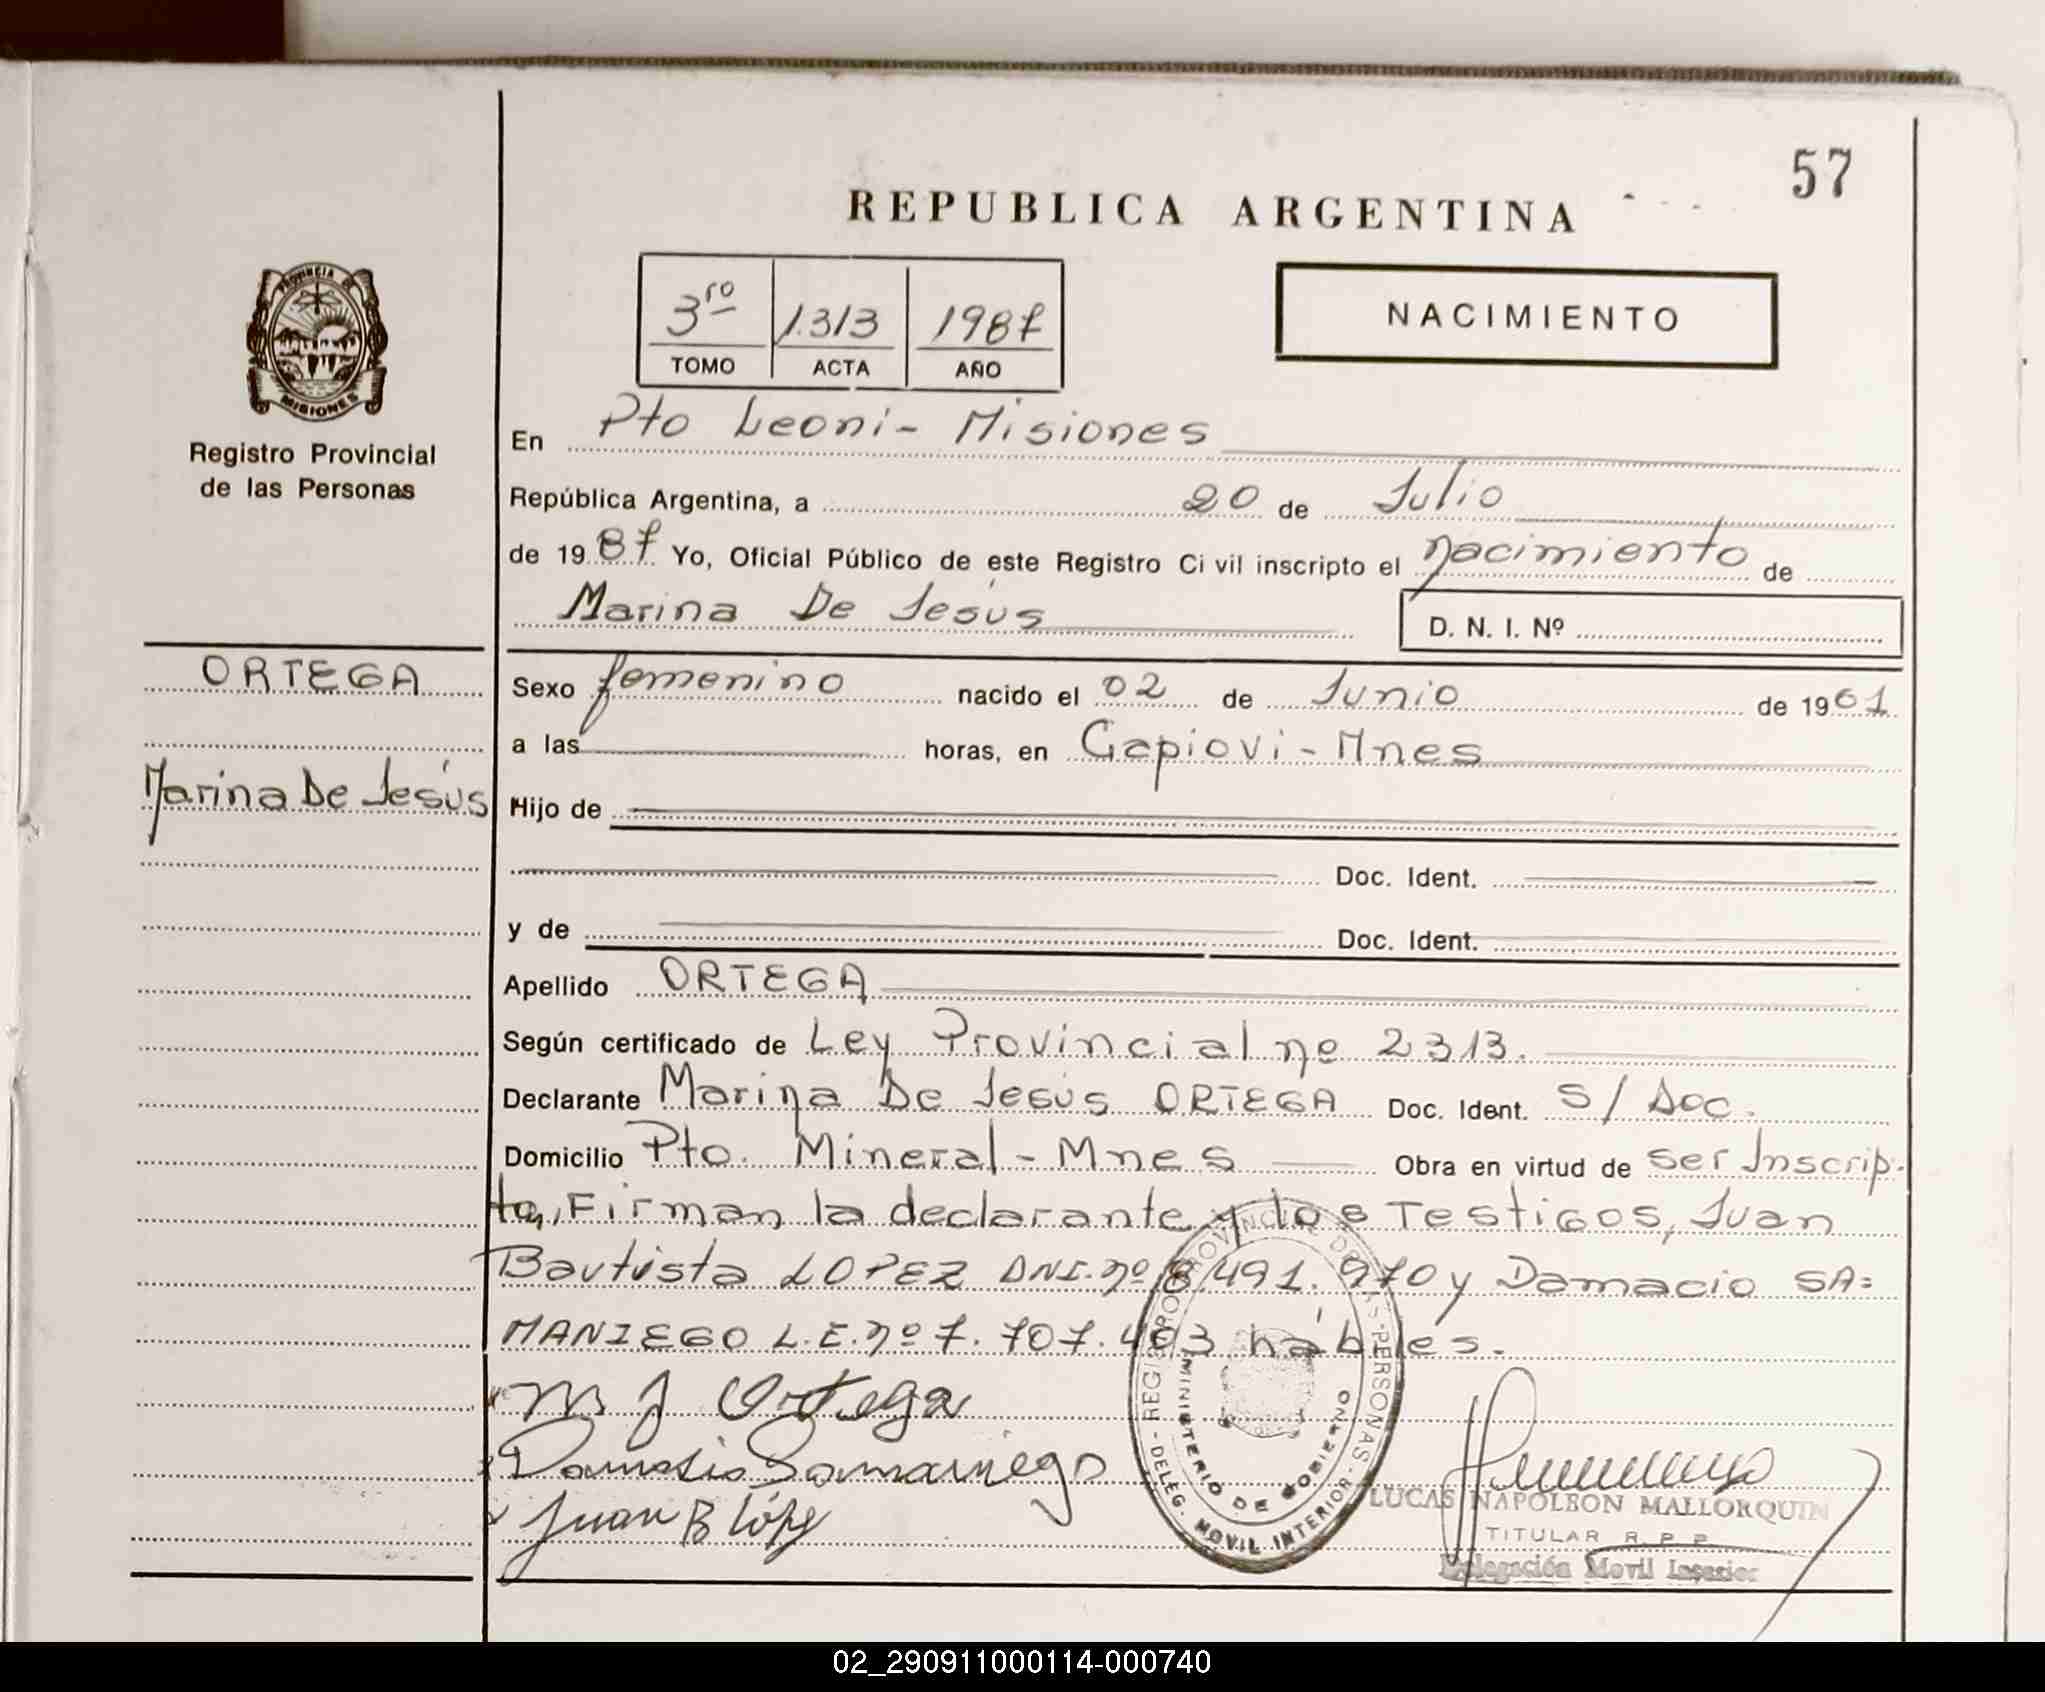 57
REPUBLICA ARGENTINA
PROVINCIA DE
MISIONES
Registro Provincial
de las Personas
3ro 1.313 1987
TOMO ACTA AÑO
NACIMIENTO
En Pto Leoni - Misiones
República Argentina, a 20 de Julio
de 19 87 Yo, Oficial Público de este Registro Civil inscripto el nacimiento de
Marina De Jesús D. N. I. Nº
ORTEGA
Marina De Jesús
Sexo femenino nacido el 02 de Junio de 1961
a las horas, en Capiovi - Mnes
Hijo de
Doc. Ident.
y de Doc. Ident.
Apellido ORTEGA
Según certificado de Ley Provincial nº 2313.
Declarante Marina De Jesús ORTEGA Doc. Ident. S/ Doc.
Domicilio Pto. Mineral - Mnes Obra en virtud de ser Inscrip.
ta, Firman la declarante y los Testigos, Juan
Bautista LOPEZ DNI. nº 8.491.970 y Damacio SA=
MANIEGO L.E. nº 7.707.403 hábiles.
M J Ortega
Damasio Samaniego
Juan B López
REGISTRO PROVINCIAL DE LAS PERSONAS - DELEG. MOVIL INTERIOR -
MINISTERIO DE GOBIERNO
LUCAS NAPOLEON MALLORQUIN
TITULAR R. P. P.
Delegación Movil Interior
02_290911000114-000740